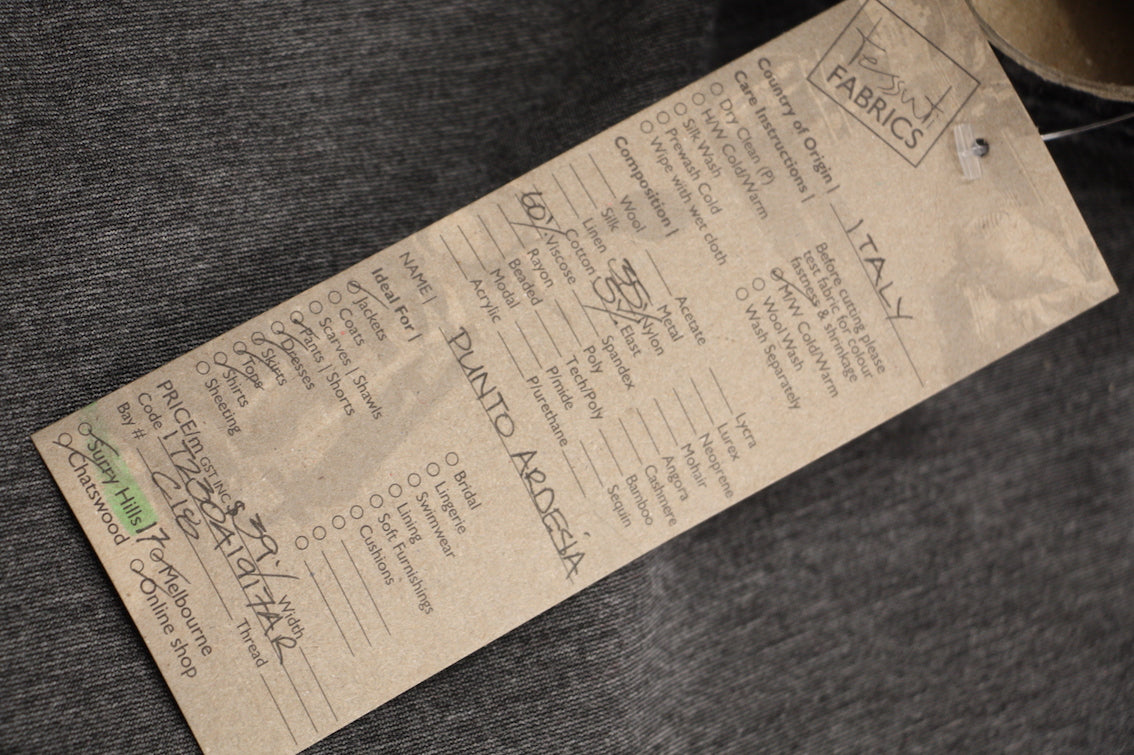 Tessuti
FABRICS
Country of Origin | ITALY
Care Instructions |
Dry Clean (P)
H/W Cold/Warm
Silk Wash
Prewash Cold
Wipe with wet cloth
Before cutting please
test fabric for colour
fastness & shrinkage
M/W Cold/Warm
Wool Wash
Wash Separately
Composition |
Wool
Silk
Linen
Cotton
60% Viscose
Rayon
Beaded
Modal
Acrylic
Acetate
Metal
35% Nylon
5% Elast
Spandex
Poly
Tech/Poly
P/mide
P/urethane
Lycra
Lurex
Neoprene
Mohair
Angora
Cashmere
Bamboo
Sequin
NAME | PUNTO ARDESIA
Ideal For |
Jackets
Coats
Scarves | Shawls
Pants | Shorts
Dresses
Skirts
Tops
Shirts
Sheeting
Bridal
Lingerie
Swimwear
Lining
Soft Furnishings
Cushions
PRICE/m GST INC $39./ Width
Code | T23041917AR
Bay # C18 Thread
Surry Hills 17 Melbourne
Chatswood Online shop